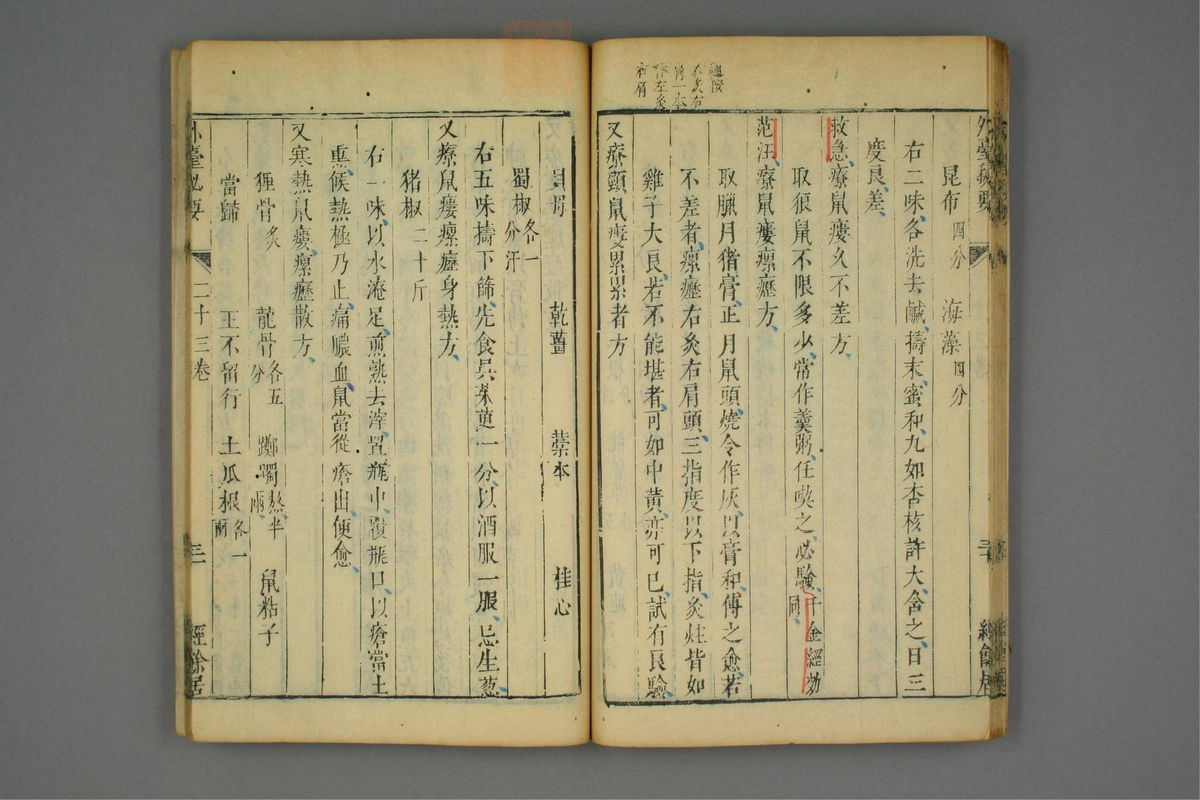 外臺秘要
昆布四分　海藻四分
右二味各洗去鹹擣末蜜和丸如杏核許大含之日三
度良差
救急療鼠瘻久不差方
取狼鼠不限多少常作羹粥任喫之必驗千金經効同
范汪療鼠瘻瘰癧方
取臘月猪膏正月鼠頭燒令作灰以膏和傅之愈若
不差者瘰癧右灸右肩頭三指度以下指灸炷皆如
雞子大良若不能堪者可如中黃亦可已試有良驗
又療頸鼠瘻累累者方
乾薑　藁本　桂心
蜀椒各一分汗
右五味擣下篩先食吳茱萸一分以酒服一服忌生葱
又療鼠瘻瘰癧身熱方
猪椒二十斤
右一味以水淹足煎熟去滓置瓶中覆瓶口以瘡當上
熏候熱極乃止痛膿血鼠當從瘡出便愈
又寒熱鼠瘻瘰癧散方
狸骨炙　龍骨各五分　躑躅熬半兩　鼠粘子
當歸　王不留行　土瓜根各一兩
外臺秘要　二十三卷　三　經餘居